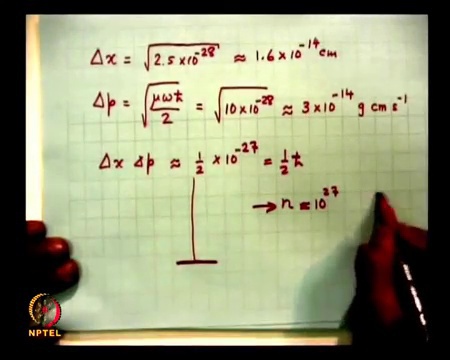 Δx = √2.5×10⁻²⁸ ≈ 1.6×10⁻¹⁴ cm
Δp = √μωħ/2 = √10×10⁻²⁸ ≈ 3×10⁻¹⁴ g cm s⁻¹
Δx Δp ≈ 1/2 × 10⁻²⁷ = 1/2 ħ
→ n ≈ 10²⁷
NPTEL